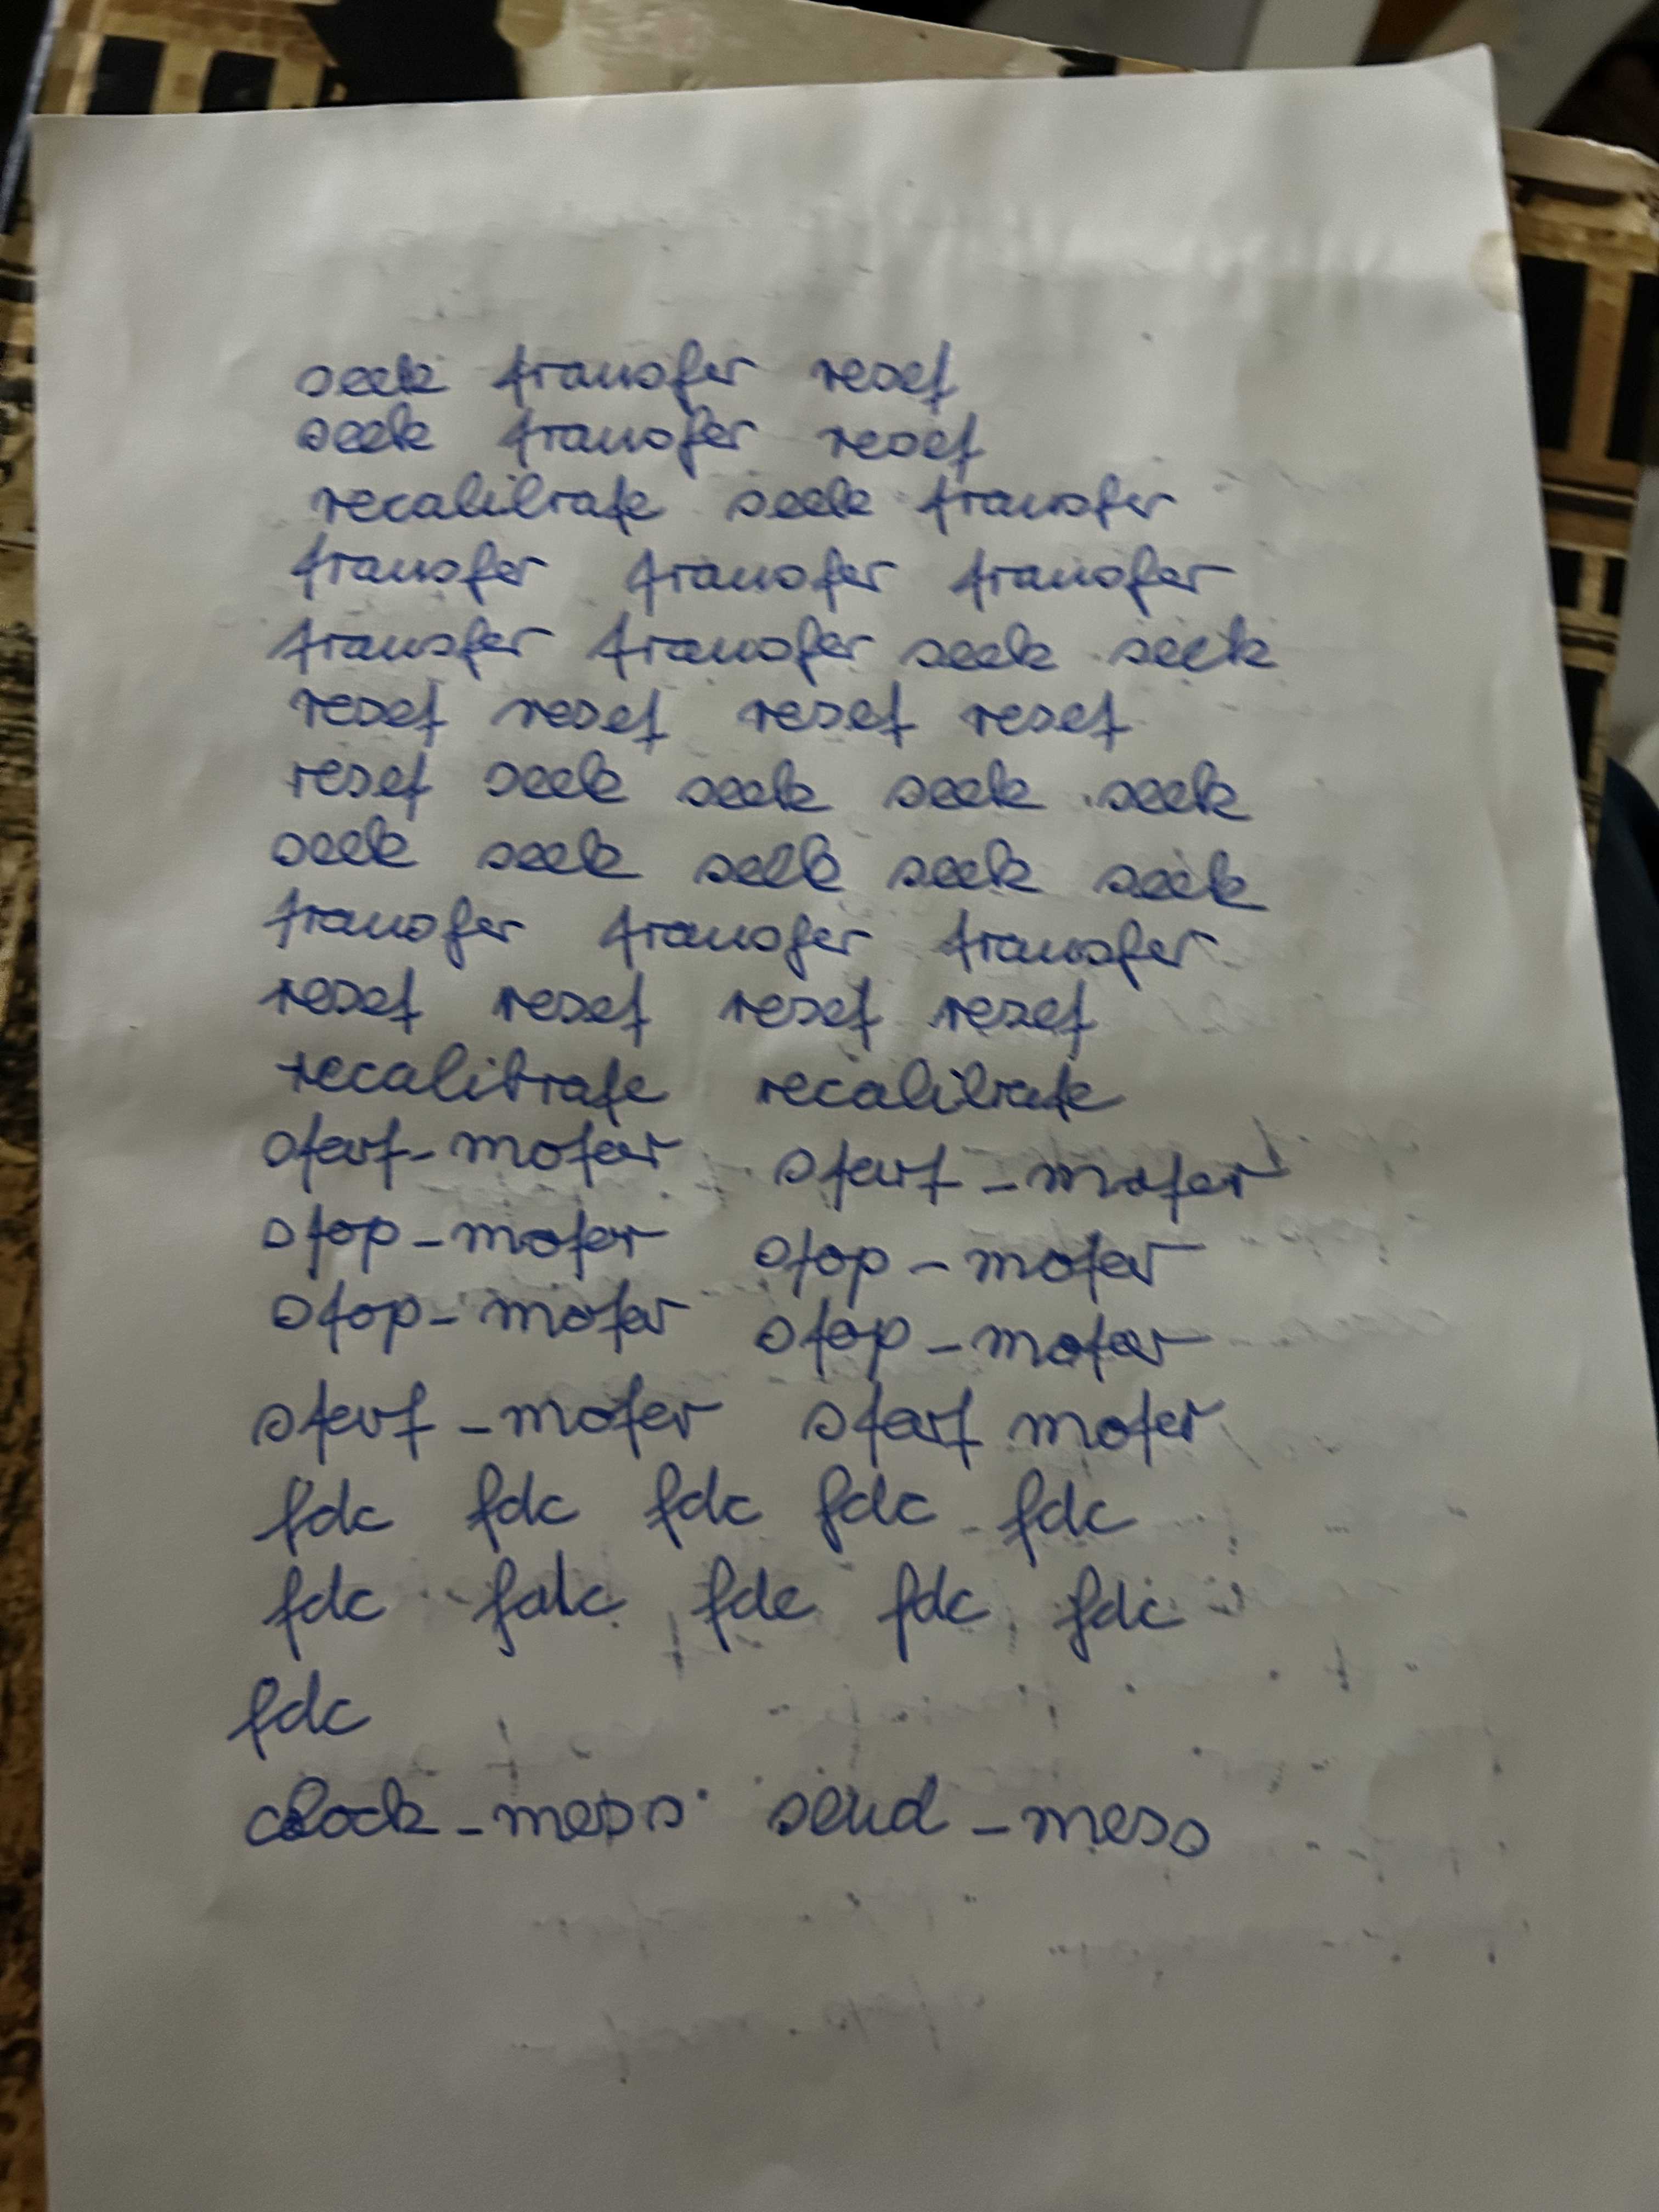 seek transfer reset
seek transfer reset
recalibrate seek transfer
transfer transfer transfer
transfer transfer seek seek
reset reset reset reset
reset seek seek seek seek
seek seek seek seek seek
transfer transfer transfer
reset reset reset reset
recalibrate recalibrate
start-moter start-moter
stop-moter stop-moter
stop-moter stop-moter
start-moter start moter
fdc fdc fdc fdc fdc
fdc fdc fdc fdc fdc
fdc
clock-mess send-mess